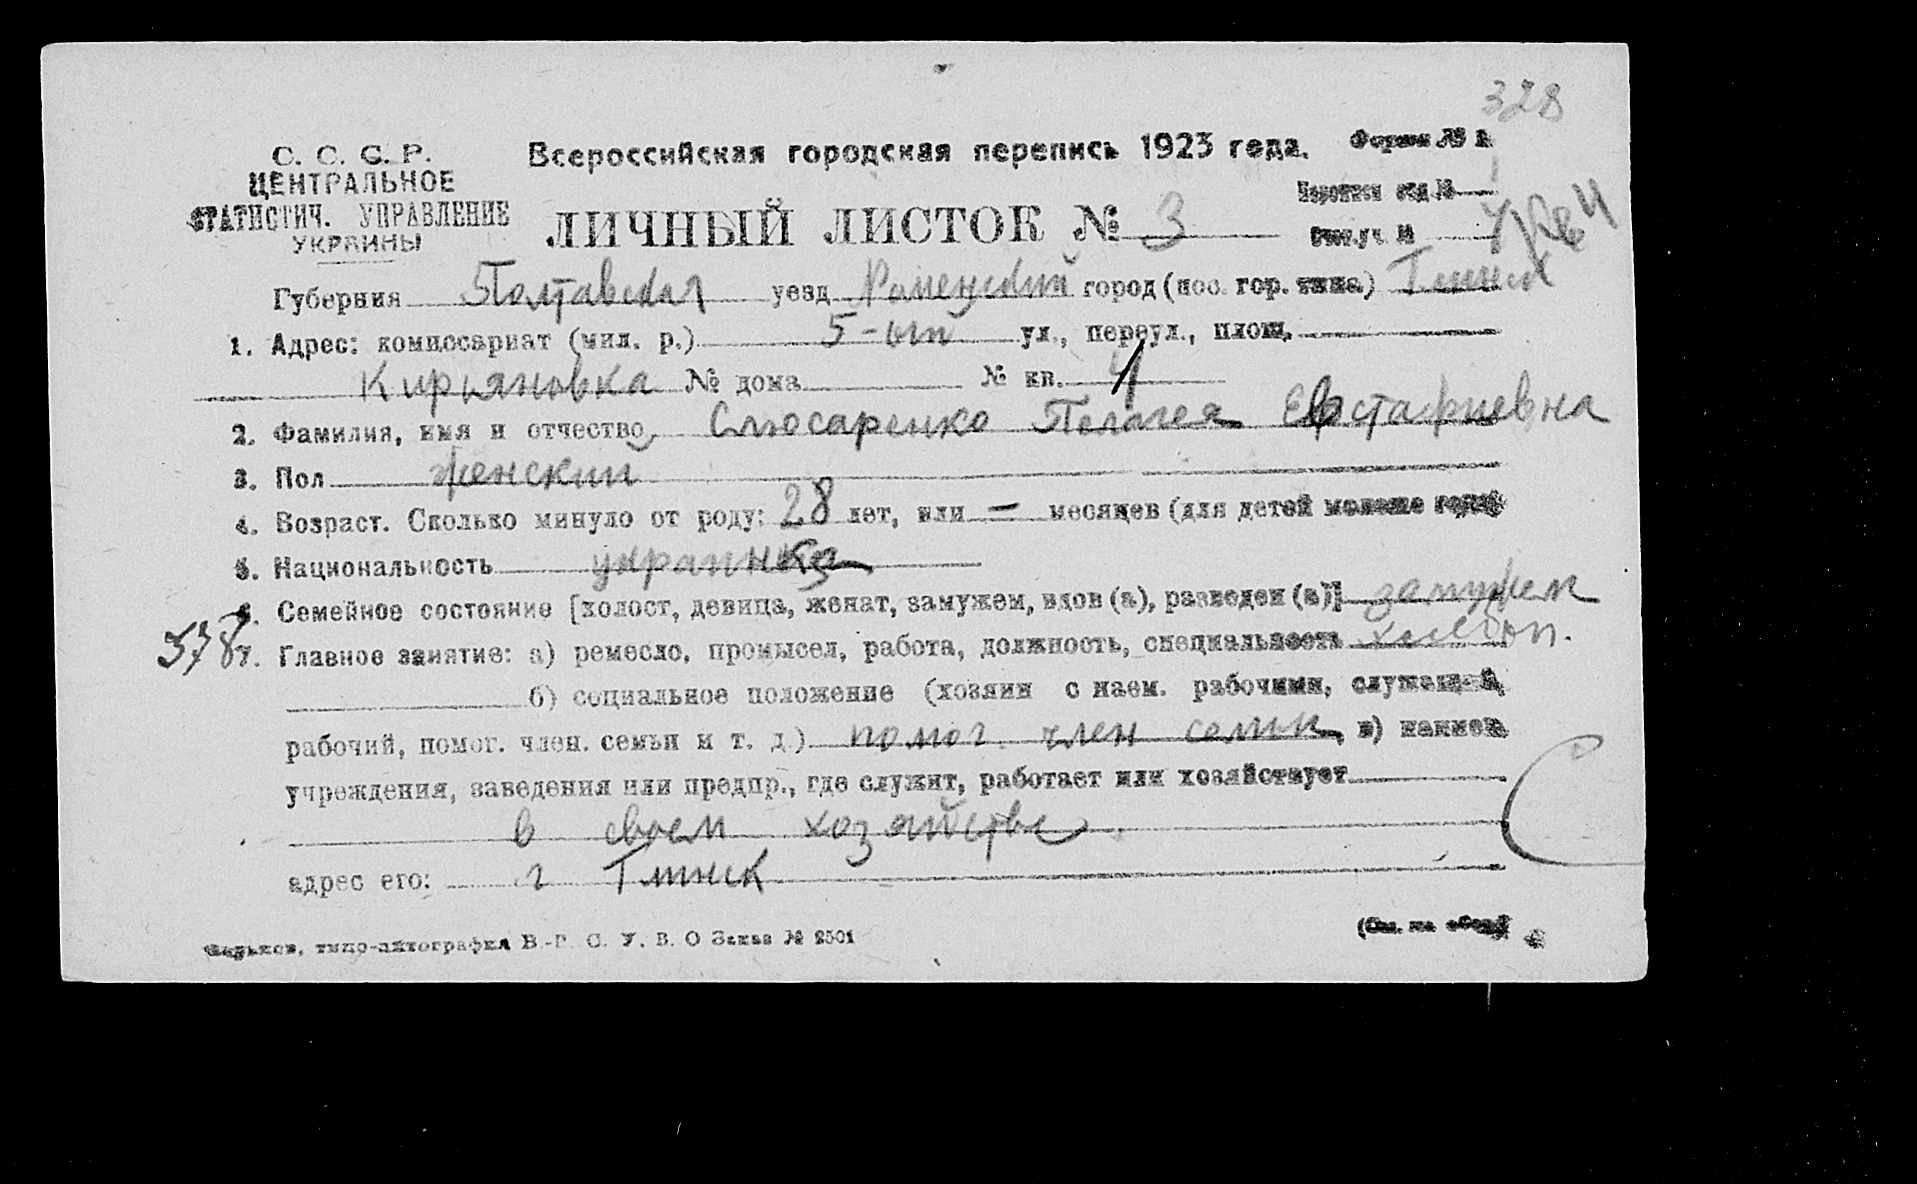 328
С. С. С. Р.
ЦЕНТРАЛЬНОЕ
СТАТИСТИЧ. УПРАВЛЕНИЕ
УКРАИНЫ
Всероссийская городская перепись 1923 года.
Форма № 2
ЛИЧНЫЙ ЛИСТОК № 3
Переписн отд №
Счет. уч. №
Губерния Полтавская уезд Роменский город (пос. гор. типа) Глинск
1. Адрес: комиссариат (мил. р.) 5-ый ул., переул., площ.
Кирьяновка № дома № кв. 4
2. Фамилия, имя и отчество Слюсаренко Пелагея Евстафиевна
3. Пол женский
4. Возраст. Сколько минуло от роду: 28 лет, или — месяцев (для детей моложе года)
5. Национальность украинка
6. Семейное состояние [холост, девица, женат, замужем, вдов (а), разведен (а)] замужем
378
7. Главное занятие: а) ремесло, промысел, работа, должность, специальность хлебоп.
б) социальное положение (хозяин с наем. рабочими, служащий,
рабочий, помог. член. семьи и т. д.) помог. член семьи, в) наимен.
учреждения, заведения или предпр., где служит, работает или хозяйствует
в своем хозяйстве
адрес его: г Глинск
Харьков, типо-литография В.-У. С. У. В. О Заказ № 2501
(См. на обор.)